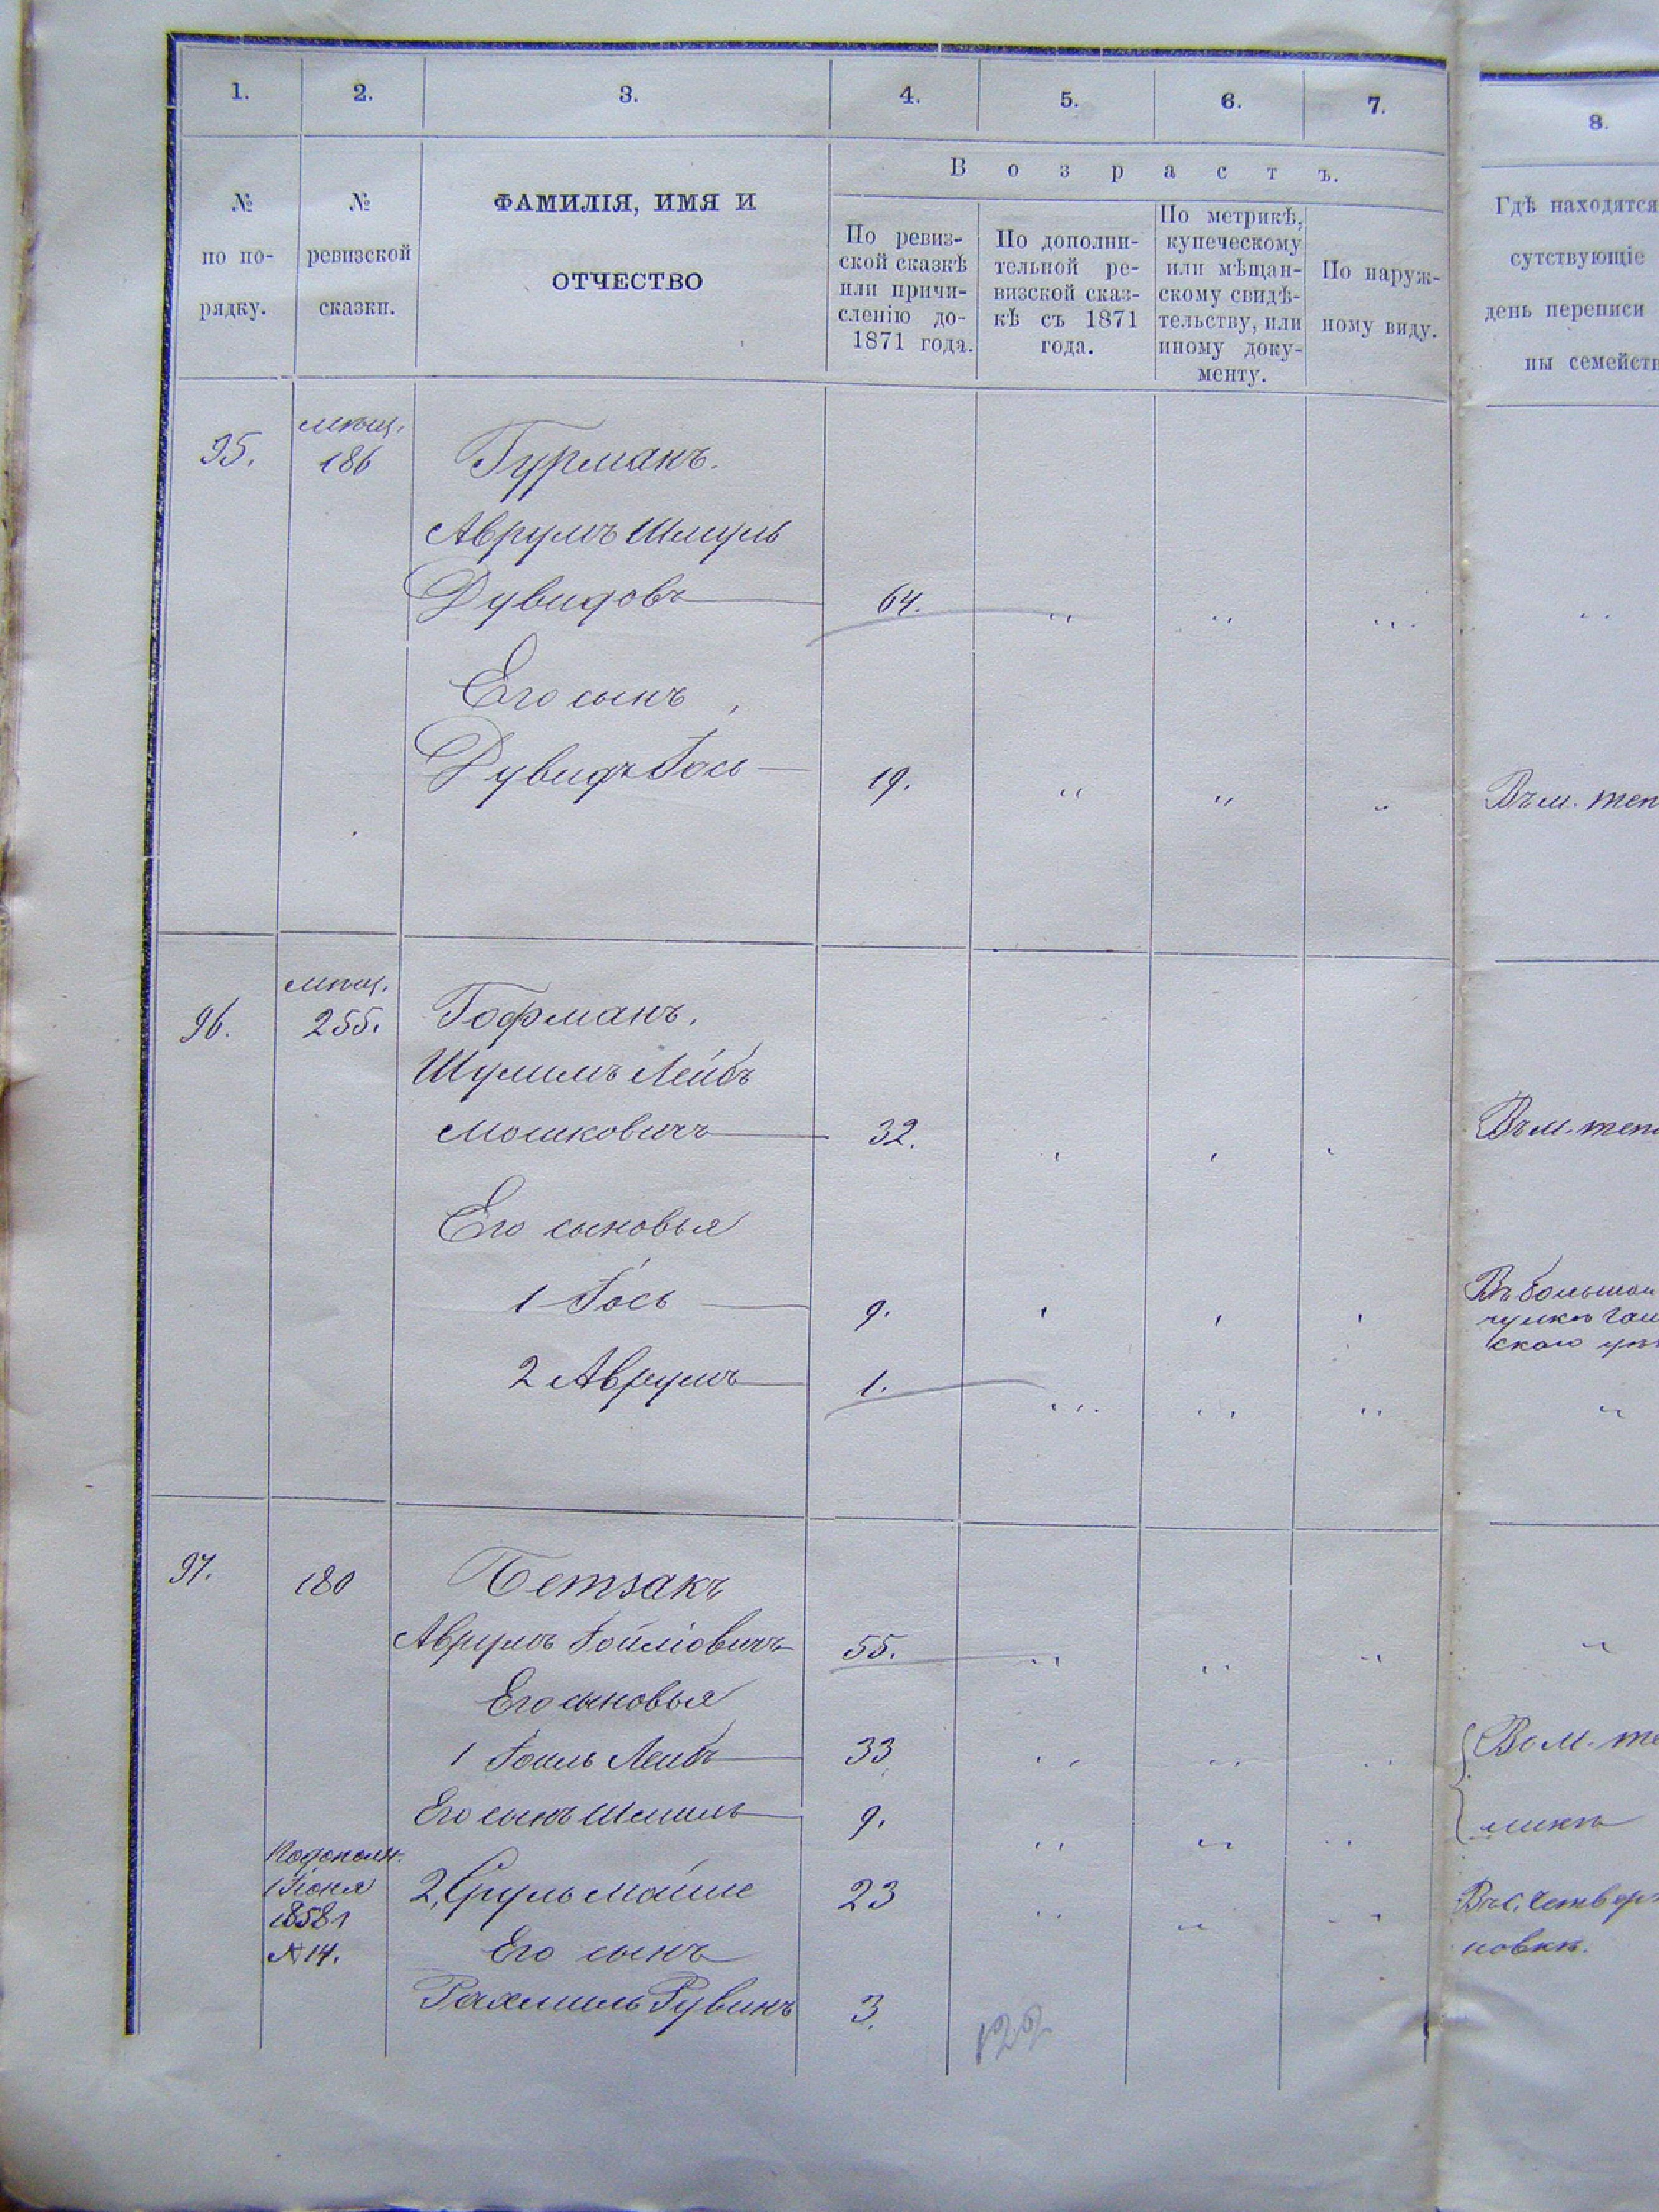 1. 2. 3. 4. 5. 6. 7. 8.
В о з р а с т ъ.
№
по по-
рядку.
№
ревизской
сказки.
ФАМИЛІЯ, ИМЯ И
ОТЧЕСТВО
По ревиз-
ской сказкѣ
или причи-
сленію до-
1871 года.
По дополни-
тельной ре-
визской сказ-
кѣ съ 1871
года.
По метрикѣ,
купеческому
или мѣщан-
скому свидѣ-
тельству, или
иному доку-
менту.
По наруж-
ному виду.
Гдѣ находятся
сутствующіе
день переписи
ны семейств
95. мѣщ. 186 Гурманъ.
Аврумъ Шмуль
Дувидовъ 64. " " "
Его сынъ
Дувидъ Іось 19. " " " Въ м. теп
96. мѣщ. 255. Гофманъ.
Шулимъ Лейбъ
Мошковичъ 32. Въ м. теп
Его сыновья
1 Іось 9. Въ большой
2 Аврумъ 1. " " " "
97. 180 Бетзакъ
Аврумъ Іойліовичъ 55. " " " "
Его сыновья
1 Іоиль Лейбъ 33 " " " Въ м. те
Его сынъ Шмиль 9. " " "
По дополн.
1 Іюня
1858 г
№ 14.
2, Сруль Мойше 23 " " " Въ с. Четвер
новкѣ.
Его сынъ
Рахмиль Рувинъ 3.
122